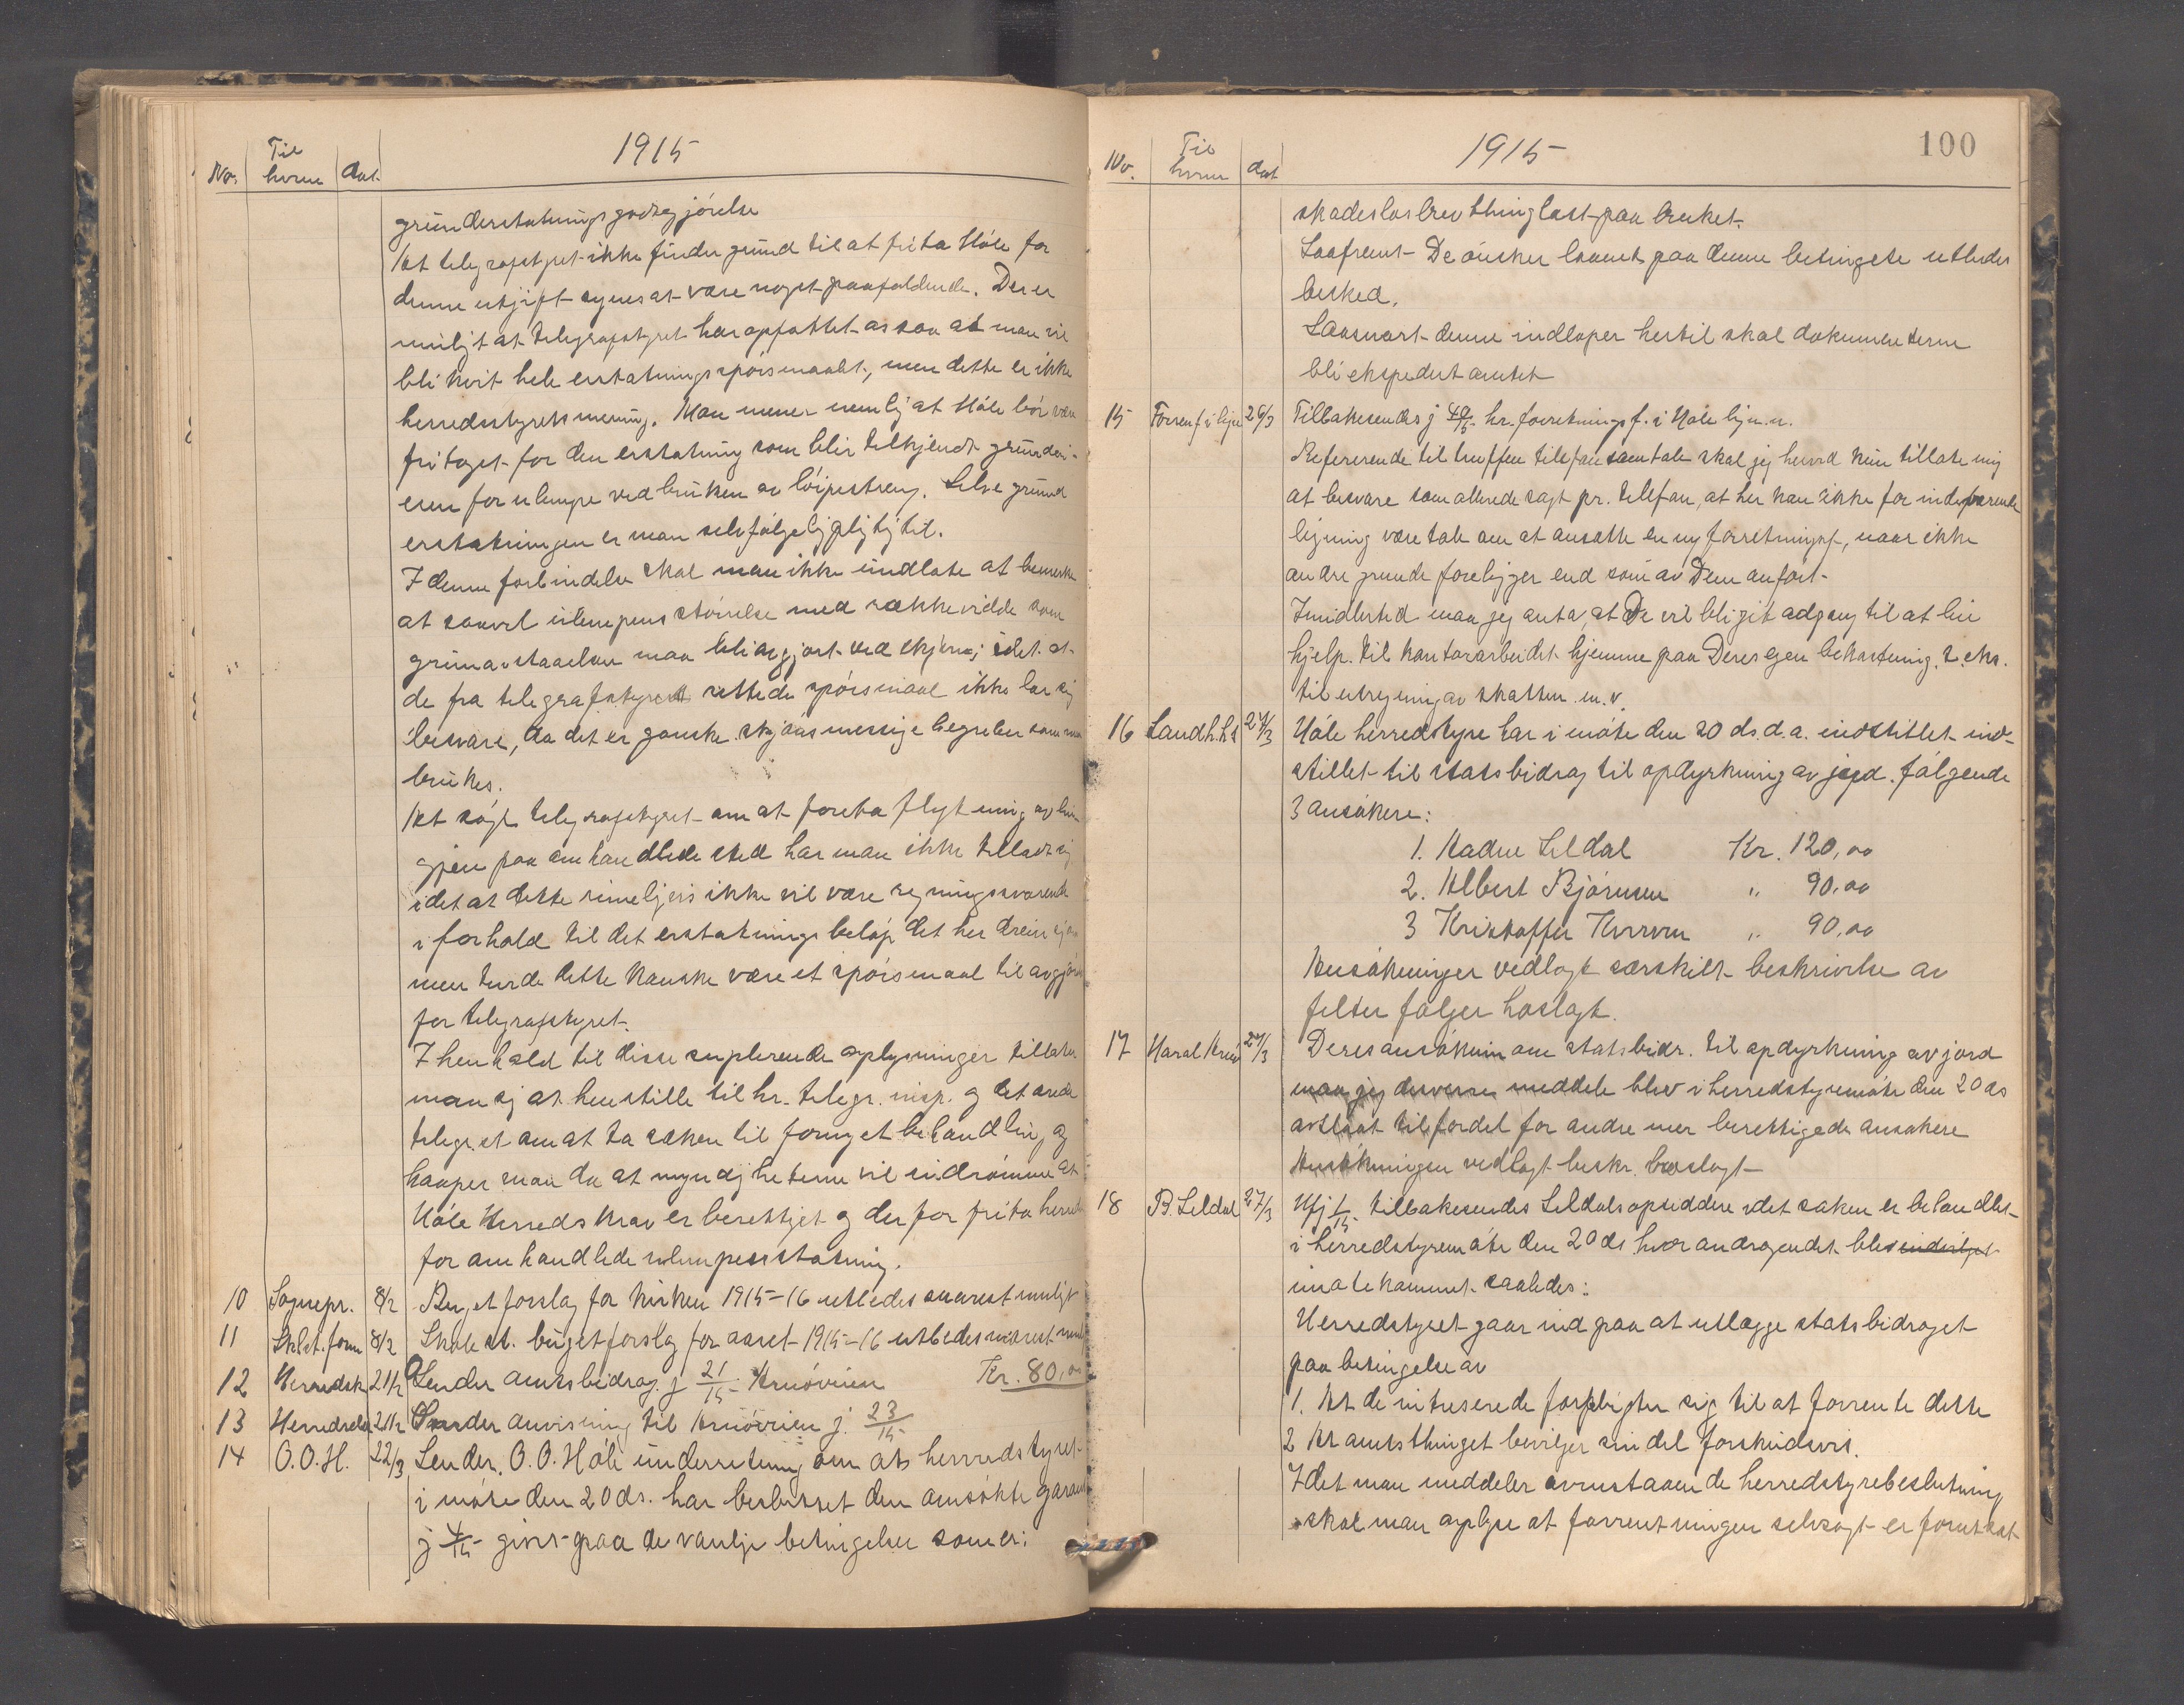 1915
No. Til hvem dat.
grunderstatningsgodtgjörelse
At telegrafstyret ikke finder grund til at frita Höle for
denne utgift synes at være noget paafaldende. Der er
muligt at telegrafstyret har opfattet os saa at man vil
bli kvit hele erstatningsspörsmaalet, men dette er ikke
herredsstyrets mening. Man mener nemlig at Höle bör være
fritaget for den erstatning som blir tilkjendt grundei-
eren for ulempe ved bruken av löipestreng. Selve grund
erstatningen er man selvfölgelig pligtig til.
I denne forbindelse skal man ikke undlate at bemerke
at saavel ulempens störrelse med rækkevidde som
grunavstaaelsen maa bli avgjort ved skjönn; idet at
de fra telegrafstyret rettede spörsmaal ikke lar sig
besvare, da det er ganske skjönsmessige begreber som maa
brukes.
At sökt telegrafstyret om at foreta flytning av lin
gjen paa omhandlede sted har man ikke tilladt sig
idet at dette rimeligvis ikke vil være regningssvarende
i forhold til det erstatnings belöp det her dreier sig om
men turde dette kanske være et spörsmaal til avgjörelse
for telegrafstyret.
I henhold til disse suplerende oplysninger tillater
man sig at henstille til hr. telegr. insp. og det ærede
telegr. et om at ta saken til fornyet behandling og
haaper man da at myndigheterne vil indrömme at
Höle Herreds krav er berettiget og derfor frita herredet
for omhandlede ulempeerstatning.
10 Sognepr. 8/2 Budjet forslag for kirken 1915-16 utbedes snarest muligt
11 Skst. form 8/2 Skole st. budjetforslag for aaret 1915-16 utbedes snarest muligt
12 Herredsk 21/2 Sender amtsbidrag j 21/15 Kr. 80,00
13 Herredsk 21/2 Sender anvisning til j. 23/15
14 O.O.H. 22/3 Sender O.O. Höle underretning om at herredstyret
i möte den 20 ds. har besluttet den ansökte garanti
j 4/15 gives paa de vanlige betingelser som er:
1915
100
No. Til hvem dat
skadeslosbrev thinglæst paa bruket.
Saafremt De önsker laanet paa denne betingelse utbedes
besked.
Saasnart denne indloper hertil skal dokumenterne
bli ekspedert amtet
15 Forrenf i lign 26/3 Tilbakesendes j 40/15 hr. forretningsf. i Höle lign.n.
Refererende til truffen telefonsamtale skal jeg herved kun tillate mig
at besvare som allerede sagt pr. telefon, at her kan ikke for indeværende
ligning være tale om at ansætte en ny forretningsf, naar ikke
andre grunde foreligger end som av Dem anfört.
Imidlertid maa jeg anta, at De vil bli git adgang til at leie
hjelp til kontorarbeidet hjemme paa Deres egen bekostning, t. eks.
til utregning av skatten m.v.
16 Landh.h.s 27/3 Höle herredstyre har i möte den 20 ds. d.a. indstillet ind-
stillet til statsbidrag til opdyrkning av jord fölgende
3 ansökere:
1. Seldal Kr. 120,00
2. Albert Björnsen " 90,00
3 Kristoffer " 90,00
Ansökninger vedlagt særskilt beskrivelse av
felter fölger hoslagt.
17 Haral 27/3 Deres ansökning om statsbidr. til opdyrkning av jord
maa jeg desverre meddele blev i herredstyremöte den 20 ds
avslaat til fordel for andre mer berettigede ansökere
Ansökningen vedlagt beskr. hoslagt
18 B. Seldal 27/3 Ufj 1/15 tilbakesendes Seldals opsiddere idet saken er behandlet
i herredstyremöte den 20 ds hvor andragendet blev indvilget
imøtekommet saaledes:
Herredstyret gaar ind paa at utlægge statsbidraget
paa betingelse av
1. At de intreserede forpligter sig til at forrente dette
2 At amtsthinget bevilger sin del forskudsvis.
Idet man meddeler ovenstaaende herredstyrebeslutning
skal man oplyse at forrentningen selvsagt er forutsat